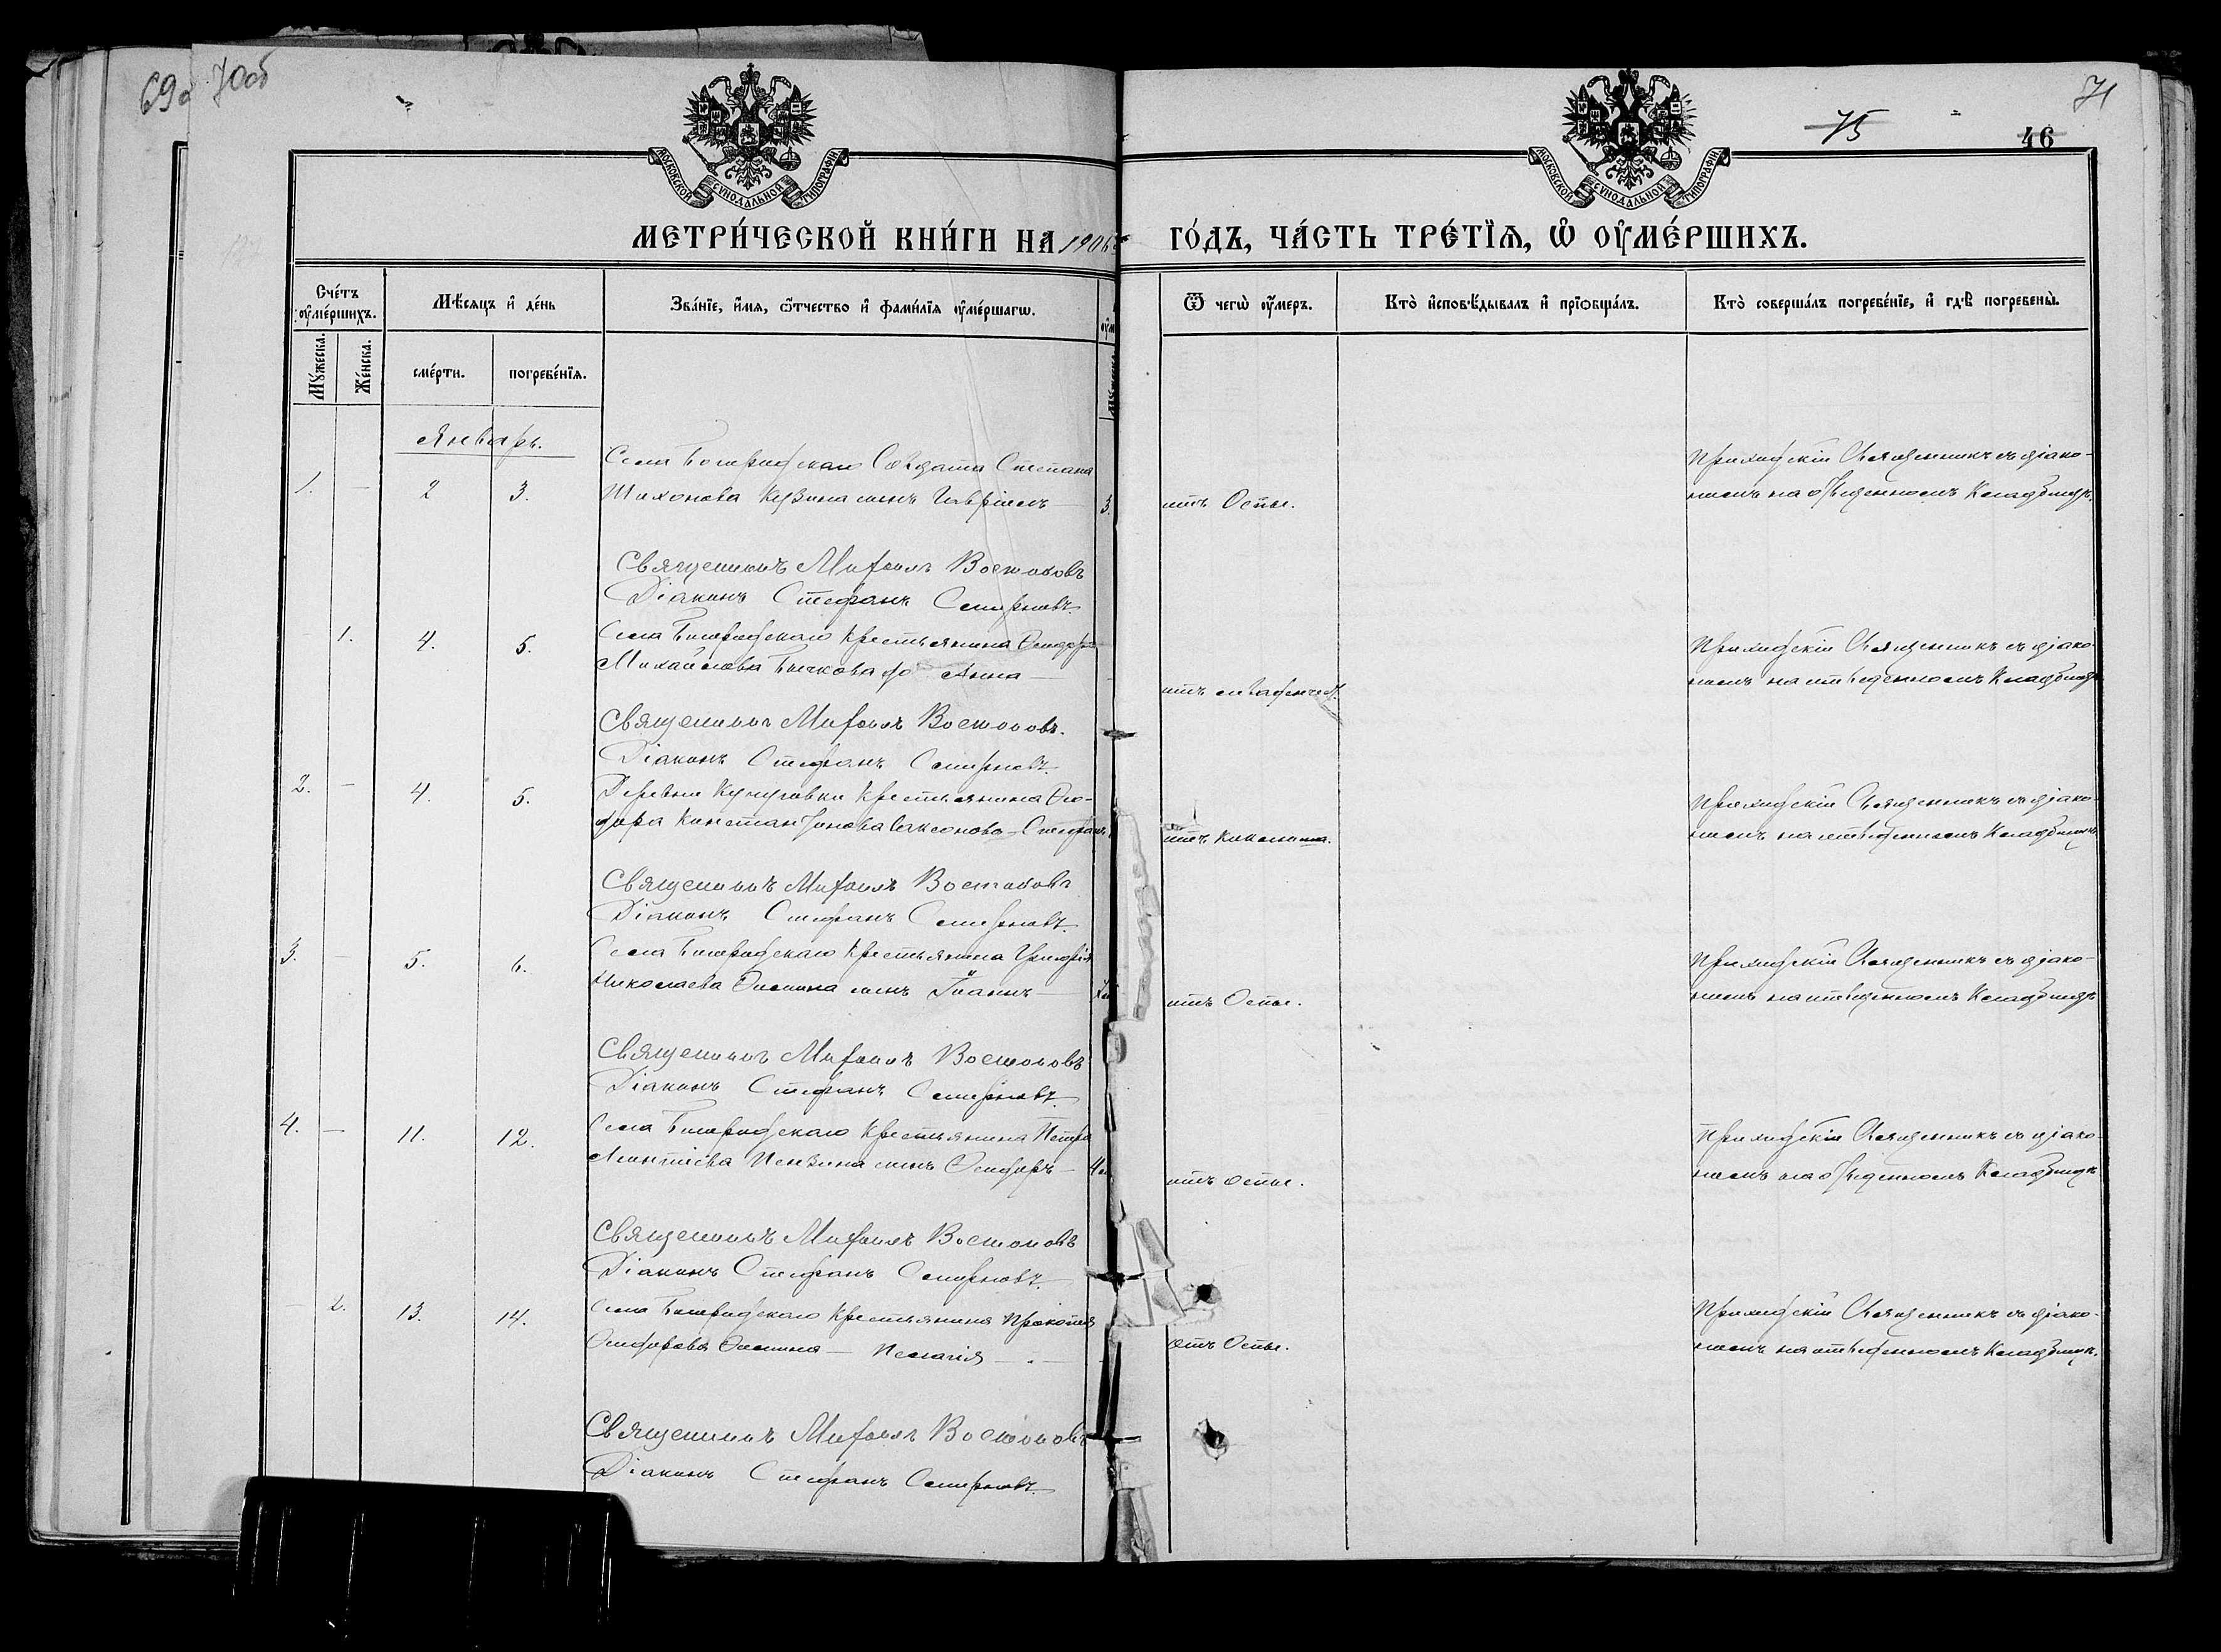 69о 70об
71
75
46
МОСКОВСКОЙ СѴНОДАЛЬНОЙ ТИПОГРАФІИ
МОСКОВСКОЙ СѴНОДАЛЬНОЙ ТИПОГРАФІИ
МЕТРИ́ЧЕСКОЙ КНИ́ГИ НА 1906
ГО́ДЪ, ЧА́СТЬ ТРЕ́ТЇѦ, Ѡ ОУМЕ́РШИХЪ.
Сче́тъ оумéршихъ.
Мꙋ́жеска.
Же́нска.
Мѣ́сяцъ и де́нь
сме́рти.
погребе́нїѧ.
Зва́нїе, и́мѧ, ѻ́тчество и фами́лїѧ оумéршагѡ.
Ѿ чегѡ̀ оу́меръ.
Кто̀ исповѣ́дывалъ и прїѡбща́лъ.
Кто̀ соверша́лъ погребе́нїе, и гдѣ̀ погребены̀.
Январь.
1. — 2 3.
Села Солдата Степана
Тихонова Кузина сынъ Гавріилъ — 3.
отъ Оспы.
Приходскій Священникъ съ діако-
номъ на отведенномъ Кладбищѣ.
Священникъ Михаилъ Востоковъ
Діаконъ Стефанъ Смирновъ
— 1. 4. 5.
Села Крестьянина
Михайлова Бычкова Анна —
отъ
Приходскій Священникъ съ діако-
номъ на отведенномъ Кладбищѣ
Священникъ Михаилъ Востоковъ.
Діаконъ Стефанъ Смирновъ
2. — 4. 5.
Деревни Крестьянина Ѳео-
дора Константинова — Стефанъ
отъ Коклюша.
Приходскій Священникъ съ діако-
номъ на отведенномъ Кладбищѣ
Священникъ Михаилъ Востоковъ
Діаконъ Стефанъ Смирновъ
3. — 5. 6.
Села Крестьянина Григорія
Николаева сынъ Іоаннъ —
отъ Оспы.
Приходскій Священникъ съ діако-
номъ на отведенномъ Кладбищѣ
Священникъ Михаилъ Востоковъ
Діаконъ Стефанъ Смирновъ
4. — 11. 12.
Села Крестьянина Петра
Леонтіева сынъ —
отъ оспы.
Приходскій Священникъ съ діако-
номъ на отведенномъ Кладбищѣ
Священникъ Михаилъ Востоковъ
Діаконъ Стефанъ Смирновъ
— 2. 13. 14.
Села Крестьянина Прокопія
— Пелагія —
отъ Оспы.
Приходскій Священникъ съ діако-
номъ на отведенномъ Кладбищѣ.
Священникъ Михаилъ Востоковъ
Діаконъ Стефанъ Смирновъ